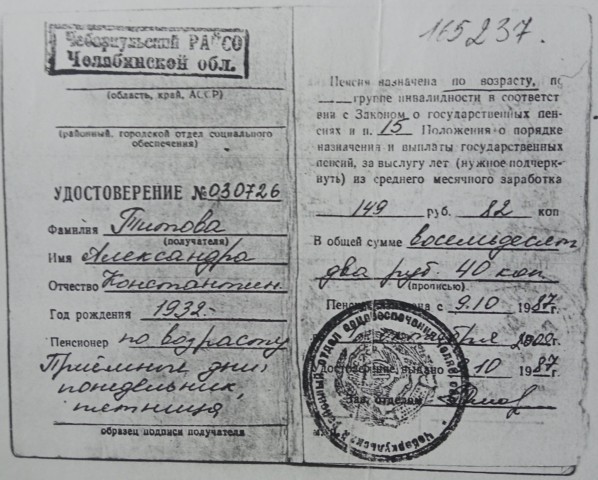 Чебаркульский РАЙСО
Челябинской обл.
(область, край, АССР)
(районный, городской отдел социального
обеспечения)
УДОСТОВЕРЕНИЕ №030726
Фамилия Титова
(получателя)
Имя Александра
Отчество Константин
Год рождения 1932.-
Пенсионер по возрасту
Приёмные дни:
понедельник,
пятница
образец подписи получателя
165237.
Пенсия назначена по возрасту, по
группе инвалидности в соответст
вии с Законом о государственных пен-
сиях и п. 15 Положения о порядке
назначения и выплаты государственных
пенсий, за выслугу лет (нужное подчерк-
нуть) из среднего месячного заработка
149 руб. 82 коп
В общей сумме восемьдесят
два руб. 40 коп
(прописью)
Пенсия назначена с 9.10 1987г.
Удостоверение выдано 10 1987г.
Зав. отделом